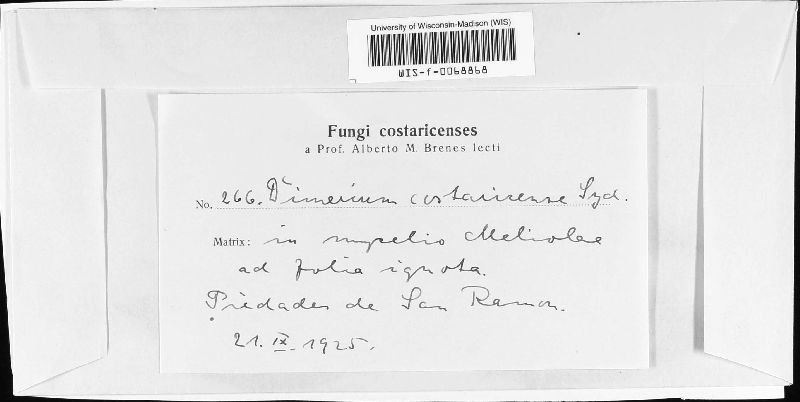 University of Wisconsin-Madison (WIS)
WIS-f-0068868
Fungi costaricenses
a Prof. Alberto M. Brenes lecti
No. 266. Dimerium costaricense Syd.
Matrix: in mycelio Meliolae
ad folia ignota.
Piedades de San Ramon.
21. IX. 1925.